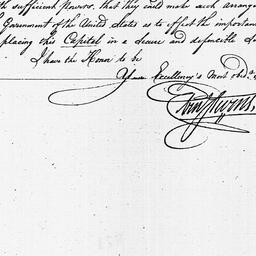 th sufficient Powers, that they could make such arrang
Government of the United States as to effect the importan
placing this Capital in a secure and defencible
I have the Honor to be
Your Excellency's Most obd.